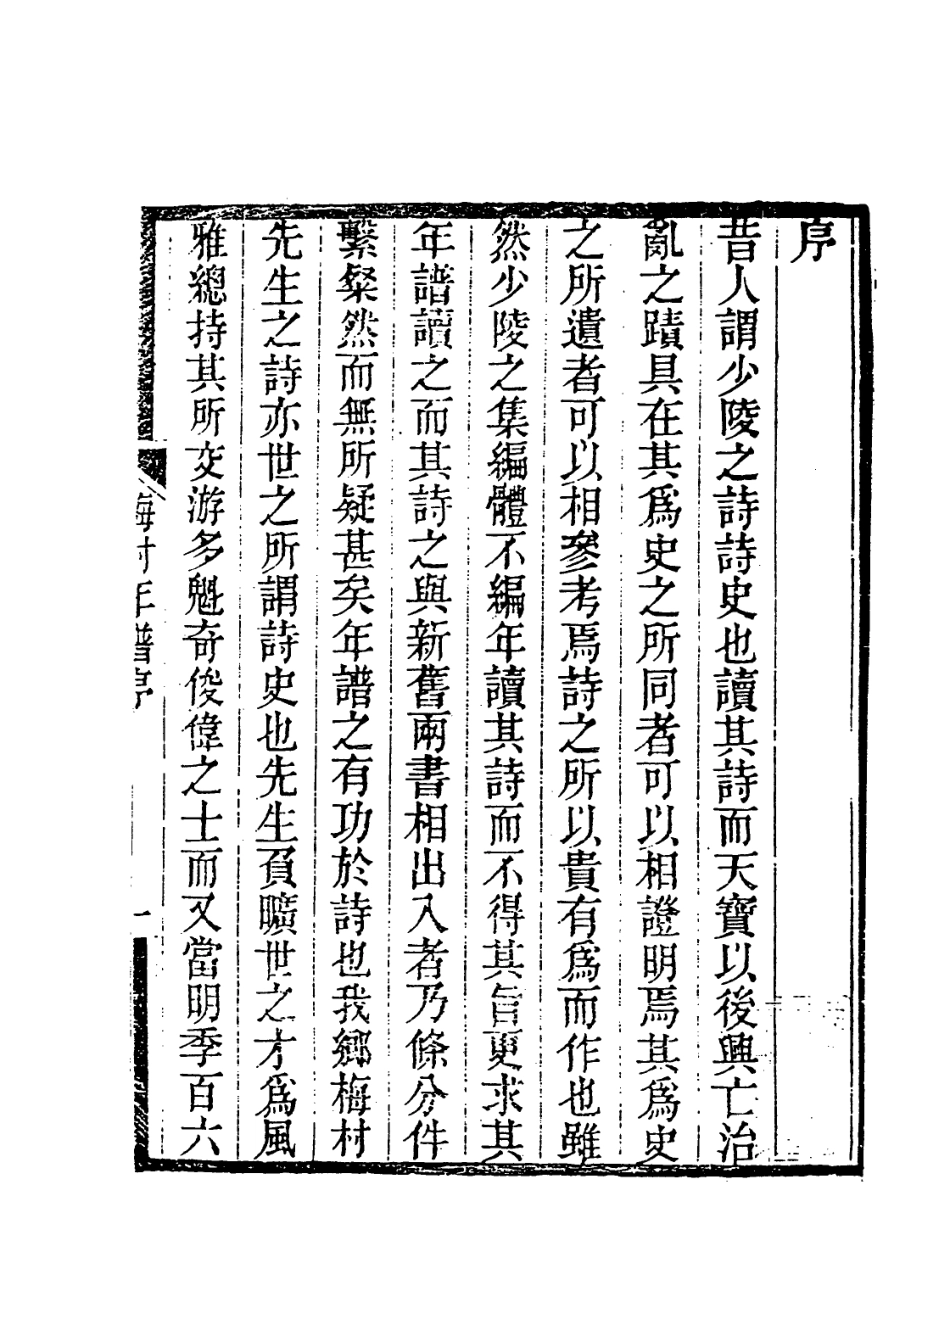 序
昔人謂少陵之詩詩史也讀其詩而天寶以後興亡治
亂之蹟具在其爲史之所同者可以相證明焉其爲史
之所遺者可以相參考焉詩之所以貴有爲而作也雖
然少陵之集編體不編年讀其詩而不得其旨更求其
年譜讀之而其詩之與新舊兩書相出入者乃條分件
繫粲然而無所疑甚矣年譜之有功於詩也我鄉梅村
先生之詩亦世之所謂詩史也先生負曠世之才爲風
雅總持其所交游多魁奇俊偉之士而又當明季百六
梅村年譜序
一